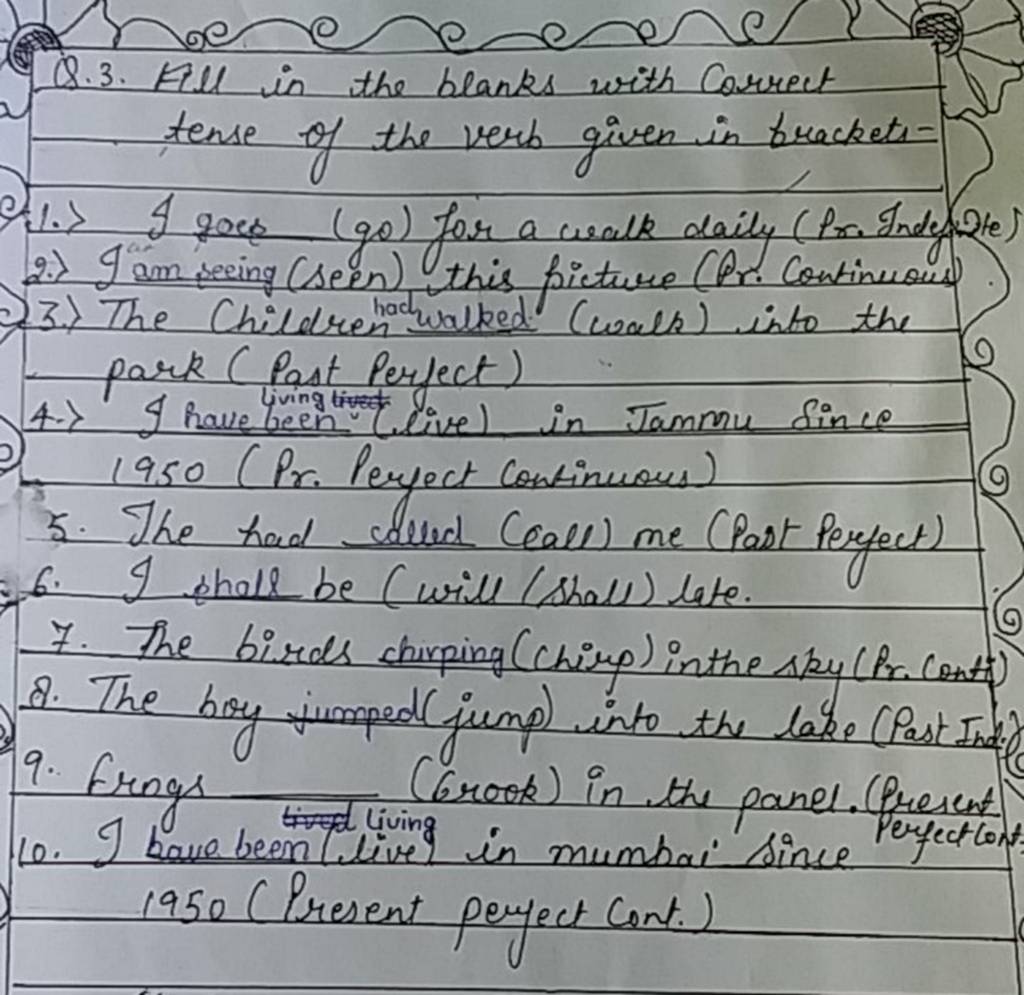 Q.3. Fill in the blanks with Correct
tense of the verb given in brackets-
1.> I goes (go) for a walk daily (Pr. Indefinite)
2.> I am seeing (seen) this picture (Pr. Continuous)
3.> The Children had walked (walk) into the
park (Past Perfect)
living lived
4.> I have been (live) in Jammu Since
1950 (Pr. Perfect Continuous)
5. The had called (Call) me (Past Perfect)
6. I shall be (will/shall) late.
7. The birds chirping (Chirp) in the sky (Pr. Conti)
8. The boy jumped (jump) into the lake (Past Ind.)
9. Frogs ______ (Crook) in the panel. (Present
Perfect Cont.
lived living
10. I have been (live) in mumbai since
1950 (Present perfect Cont.)